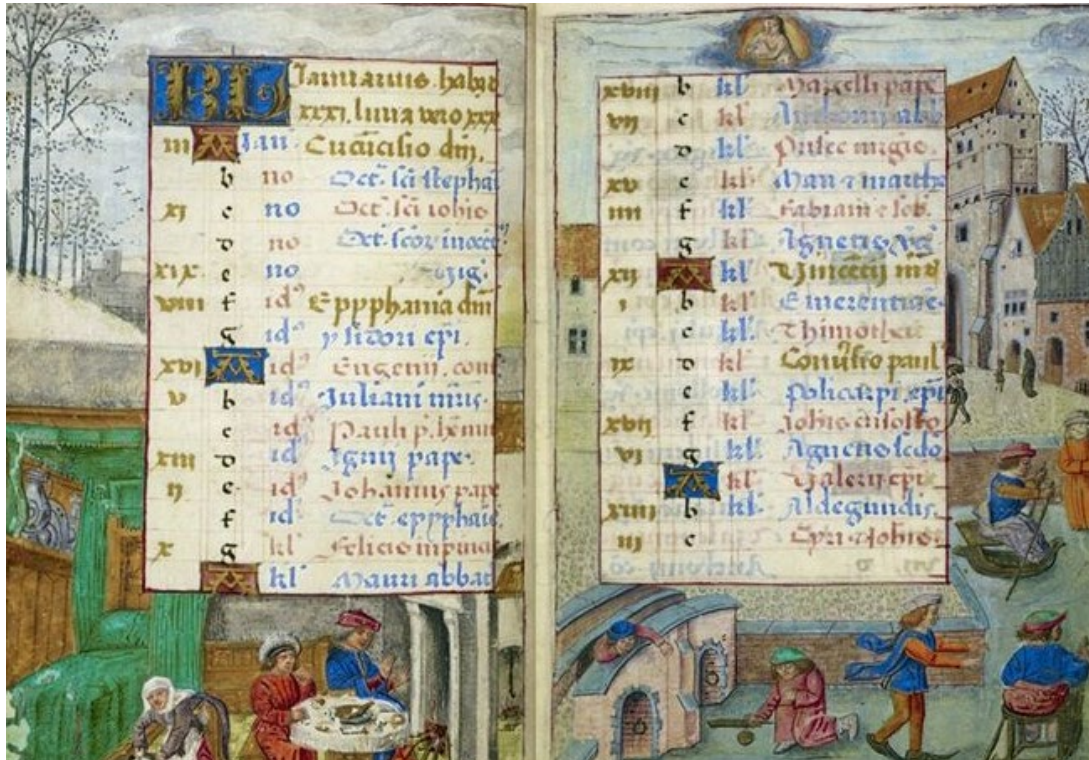 KL Januarius habet
XXXI. luna vero xxx
iii A Jan. Circūcisio dn̄i.
b no Oct. sc̄i stephaī
xi c no Oct. sc̄i iohis
d no Oct. scōr īnocēt
xix e no vig
viii f idꝰ Epyphania dn̄i
g idꝰ ysidori ep̄i.
xvi A idꝰ Eugenii. conf
v b idꝰ Iuliani mr̄is
c idꝰ Pauli p. hermit
xiii d idꝰ Ignij pape.
ii e idꝰ Johannis pape
f idꝰ Oct. epyphaīe.
x g kl Felicis in pincis
A kl Mauri abbat
xviii b kl Marcelli pape
vii c kl Anthonij abb
d kl Prisce virgis.
xv e kl Mari ⁊ marthe
iiii f kl Fabiani ⁊ seb.
g kl Agnetis. vḡ
xii A kl Vincētij mr̄
i b kl Emerentiāe.
c kl Thimothei
ix d kl Conv̄sio paul
e kl Policarpi. ep̄i
xvii f kl Johis crisosto
vi g kl Agnetis scdo
A kl Valerij epi.
xiiii b kl Aldegundis.
iii c kl Cyri ⁊ Johis.